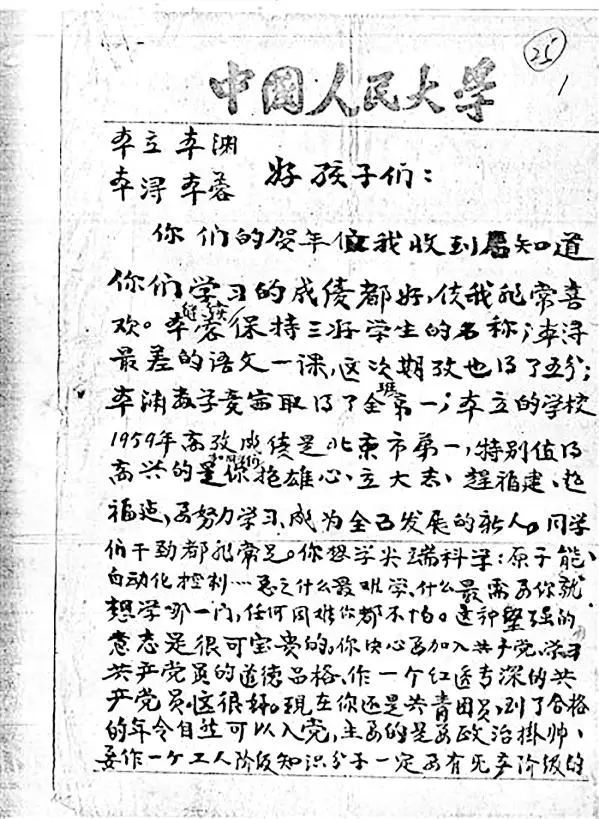 25
1
中国人民大学
李立 李渊
李浔 李蓉 好孩子们：
你们的贺年信我收到后知道
你们学习的成绩都好，使我非常喜
欢。李蓉继续保持三好学生的名称；李浔
最差的语文一课，这次期考也得了五分；
李渊数学竞赛取得了全班第一；李立的学校
1959年高考成绩是北京市第一，特别值得
高兴的是你和同学们抱雄心、立大志、赶福建、超
福建，要努力学习，成为全面发展的新人。同学
们干劲都非常足。你想学尖端科学：原子能、
自动化控制…总之什么最难学、什么最需要你就
想学哪一门，任何困难你都不怕。这种坚强的
意志是很可宝贵的，你决心要加入共产党，学习
共产党员的道德品格、作一个红透专深的共
产党员，这很好。现在你还是共青团员，到了合格
的年令自然可以入党，主要的是要政治掛帅、
要作一个工人阶级知识分子一定要有无产阶级的